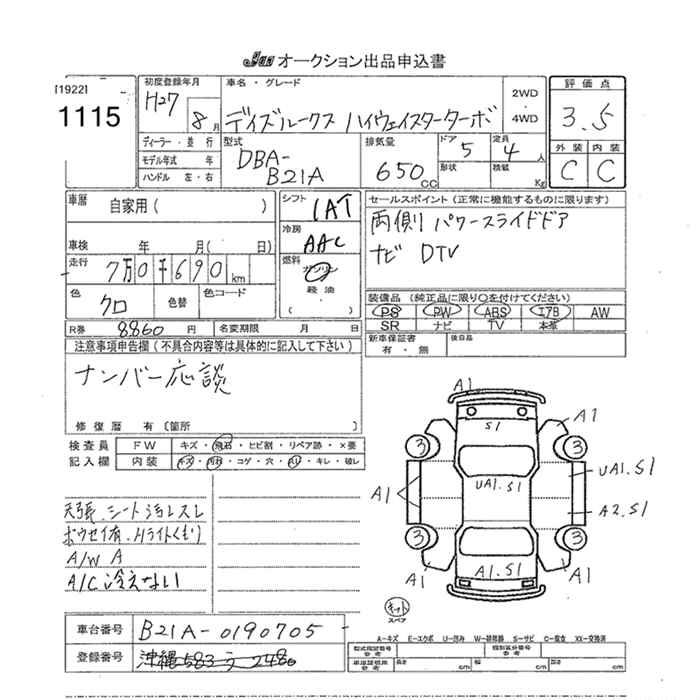 JAA オークション出品申込書
[1922]
1115
初度登録年月
H27 8月
車名・グレード
デイズルークス ハイウェイスターターボ
2WD
・
4WD
評価点
3.5
ディーラー・並行
モデル年式 年
ハンドル 左・右
型式
DBA-
B21A
排気量
650 CC
ドア
5
形状
定員
4 人
積載
Kg
外装 内装
C C
車歴
自家用 ( )
シフト
1AT
セールスポイント (正常に機能するものに限ります)
両側パワースライドドア
ナビ DTV
車検 年 月( 日)
冷房
AAC
走行
7万0千690 km
燃料
ガソリン
軽油
( )
色
クロ
色替
色コード
装備品 (純正品に限り○を付けてください)
PS PW ABS エアB AW
SR ナビ TV 本革
R券 8860 円
名変期限 月 日
新車保証書
有・無
後日品
注意事項申告欄 (不具合内容等は具体的に記入して下さい)
ナンバー応談
修復歴 有 [箇所 ]
検査員
記入欄
FW キズ・飛石・ヒビ割・リペア跡・×要
内装 キズ・汚れ・コゲ・穴・スレ・キレ・破レ
天張、シート汚レスレ
ボウセイ有、Hライトくもり
A/W A
A/C 冷えない
A1
A1
S1
3
3
UA1.S1
UA1.S1
A1
A2.S1
3
3
A1
A1.S1
A1
キット
スペア
A-キズ E-エクボ U-凹み W-補修跡 S-サビ C-腐食 XX-交換済
車台番号 B21A-0190705
登録番号 沖縄 583 う 2480
型式指定番号
参考
類別区分番号
参考
車体証明書
参考
長さ cm
幅 cm
高さ cm